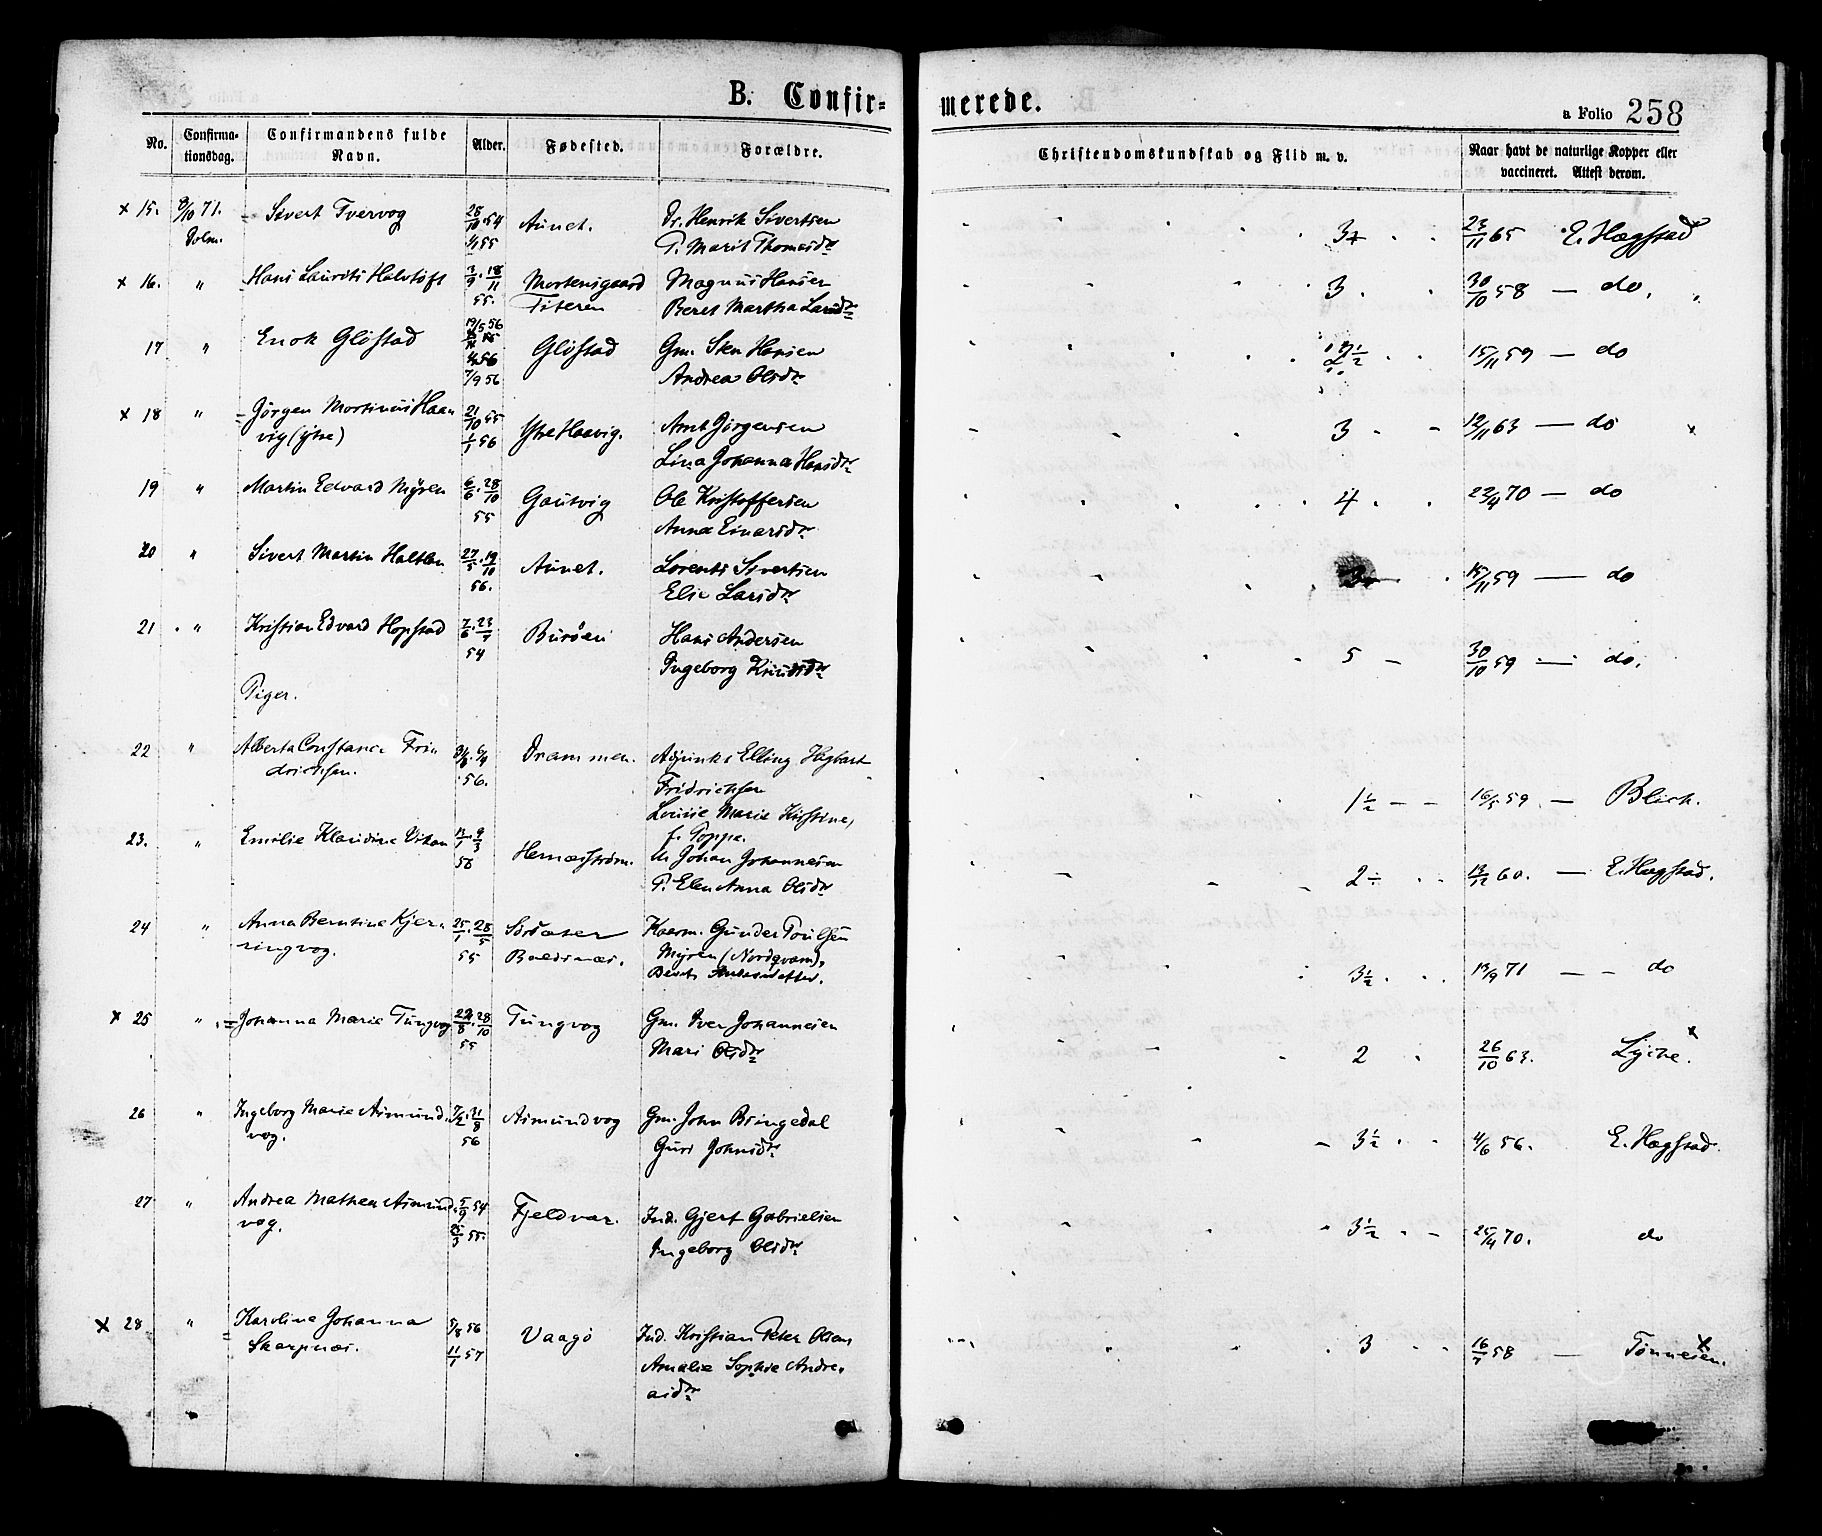 B. Confir-
merede.
a Folio 258
No.
Confirma-
tionsdag.
Confirmandens fulde
Navn.
Alder.
Fødested.
Forældre.
Christendomskundskab og Flid m. v.
Naar havt de naturlige Kopper eller
vaccineret. Attest derom.
x 15. 8/10 71. Sivert Tvervog 28/10 54 Aunet. Dr. Henrik Sivertsen 23/11 65 E. Hegstad
Dolm. 55 P. Marit Thomasdr
x 16. " Hans Laurits 3/9 . 18/11 Mortensgaard Magnus Hansen 3 30/10 58 — do.
55. Titeren Beret Martha Larsdr
17 " Enok Gløstad 19/5 56 Gløstad Gm. Sten Hansen 15/11 59 — do
7/9 56 Andrea Olsdr
x 18 " Jørgen Martinus Haa 21/10 55 Ytre Haavig. Arnt Jørgensen 3 12/11 63 — do x
vig (ytre) 1/1 56 Lina Johanna Hansdr
19 " Martin Edvard Myren 6/6 . 28/10 Gautvig Ole Kristoffersen 4 22/4 70 — do
55 Anna Einarsdr
20 " Sivert Martin Haltlan 27/5 . 19/10 Aunet. Lorents Sivertsen 15/11 59 — do
56. Elie Larsdr
21 " Kristian Edvard Hopstad 7/6 . 23/7 Burøen Hans Andersen 5 30/10 59 — do.
54 Ingeborg Knudsdr
Piger.
22 " Alberta Constance Frie Drammen. Elling Hagbart
drichsen. 56. Fridrichsen
Louise Marie Kirstine, 1 1/2 16/5 59 — Blich.
f. Poppe.
23. " Emilie Klaudine Vikan 9/3 Hernæsstrøm. M. Johan Johannesen 2 ÷ 13/12 60. — E. Hegstad.
56 P. Elen Anna Olsdr
24 " Anna Berntine Kjer- 25/1 . 28/5 Kaarm. Gunder Poulsen
ringvog. 55 Baldsnæs. Myren (Nordqvam), 3 1/2 13/9 71 — — do
x 25 " Johanna Marie Tungvog 22/8 . 28/10 Tungvog Gm. Iver Johannesen
55 Mari Olsdr 2 26/10 63. Lyche. x
26 " Ingeborg Marie Asmund- 7/2 . 31/8 Asmundvog Gm. John Bringedal
vog. 56 Guri Johnsdr 3 1/2 4/6 56. E. Hegstad.
27 " Andrea Mathea Asmund- 5/9 54 Fjeldvær. Ind. Gjert Gabrielsen
vog. 25/3 55. Ingeborg Olsdr 3 1/2 25/4 70. do
x 28 " Karoline Johanna 5/8 56 Vaagø Ind. Kristian Peter Olsen 3 16/7 58 — Tønnesen. x
Skarpnæs. 11/1 57 Amalie Sophie Andre-
asdr